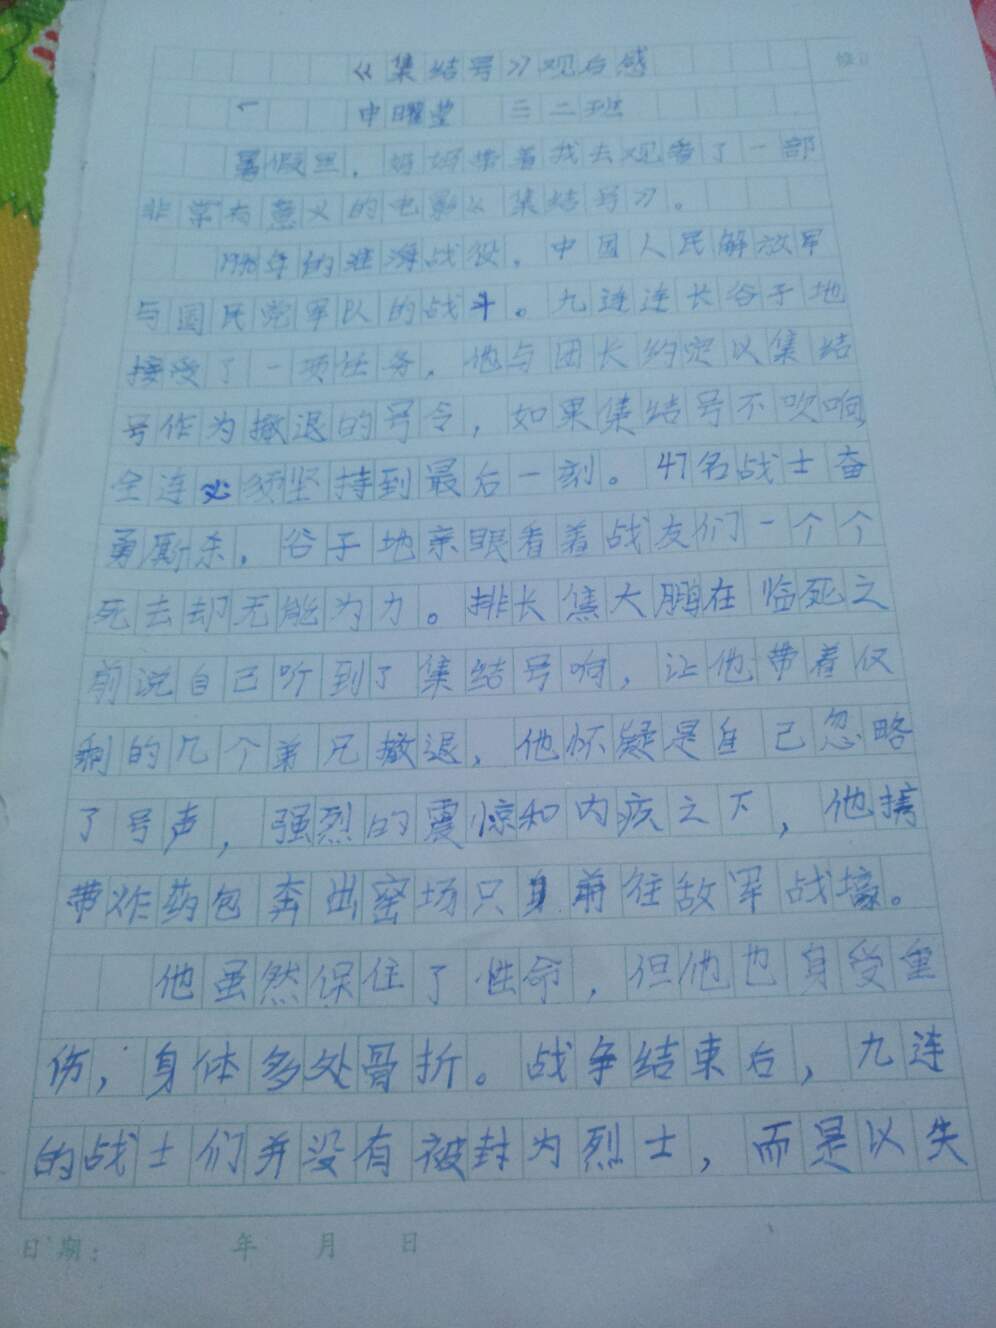 《集结号》观后感
申曜莹 三二班
暑假里，妈妈带着我去观看了一部
非常有意义的电影《集结号》。
1948年的淮海战役，中国人民解放军
与国民党军队的战斗。九连连长谷子地
接受了一项任务，他与团长约定以集结
号作为撤退的号令，如果集结号不吹响，
全连必须坚持到最后一刻。47名战士奋
勇厮杀，谷子地亲眼看着战友们一个个
死去却无能为力。排长焦大鹏在临死之
前说自己听到了集结号响，让他带着仅
剩的几个弟兄撤退，他怀疑是自己忽略
了号声，强烈的震惊和内疚之下，他携
带炸药包奔出窑场只身前往敌军战壕。
他虽然保住了性命，但他也身受重
伤，身体多处骨折。战争结束后，九连
的战士们并没有被封为烈士，而是以失
日期： 年 月 日